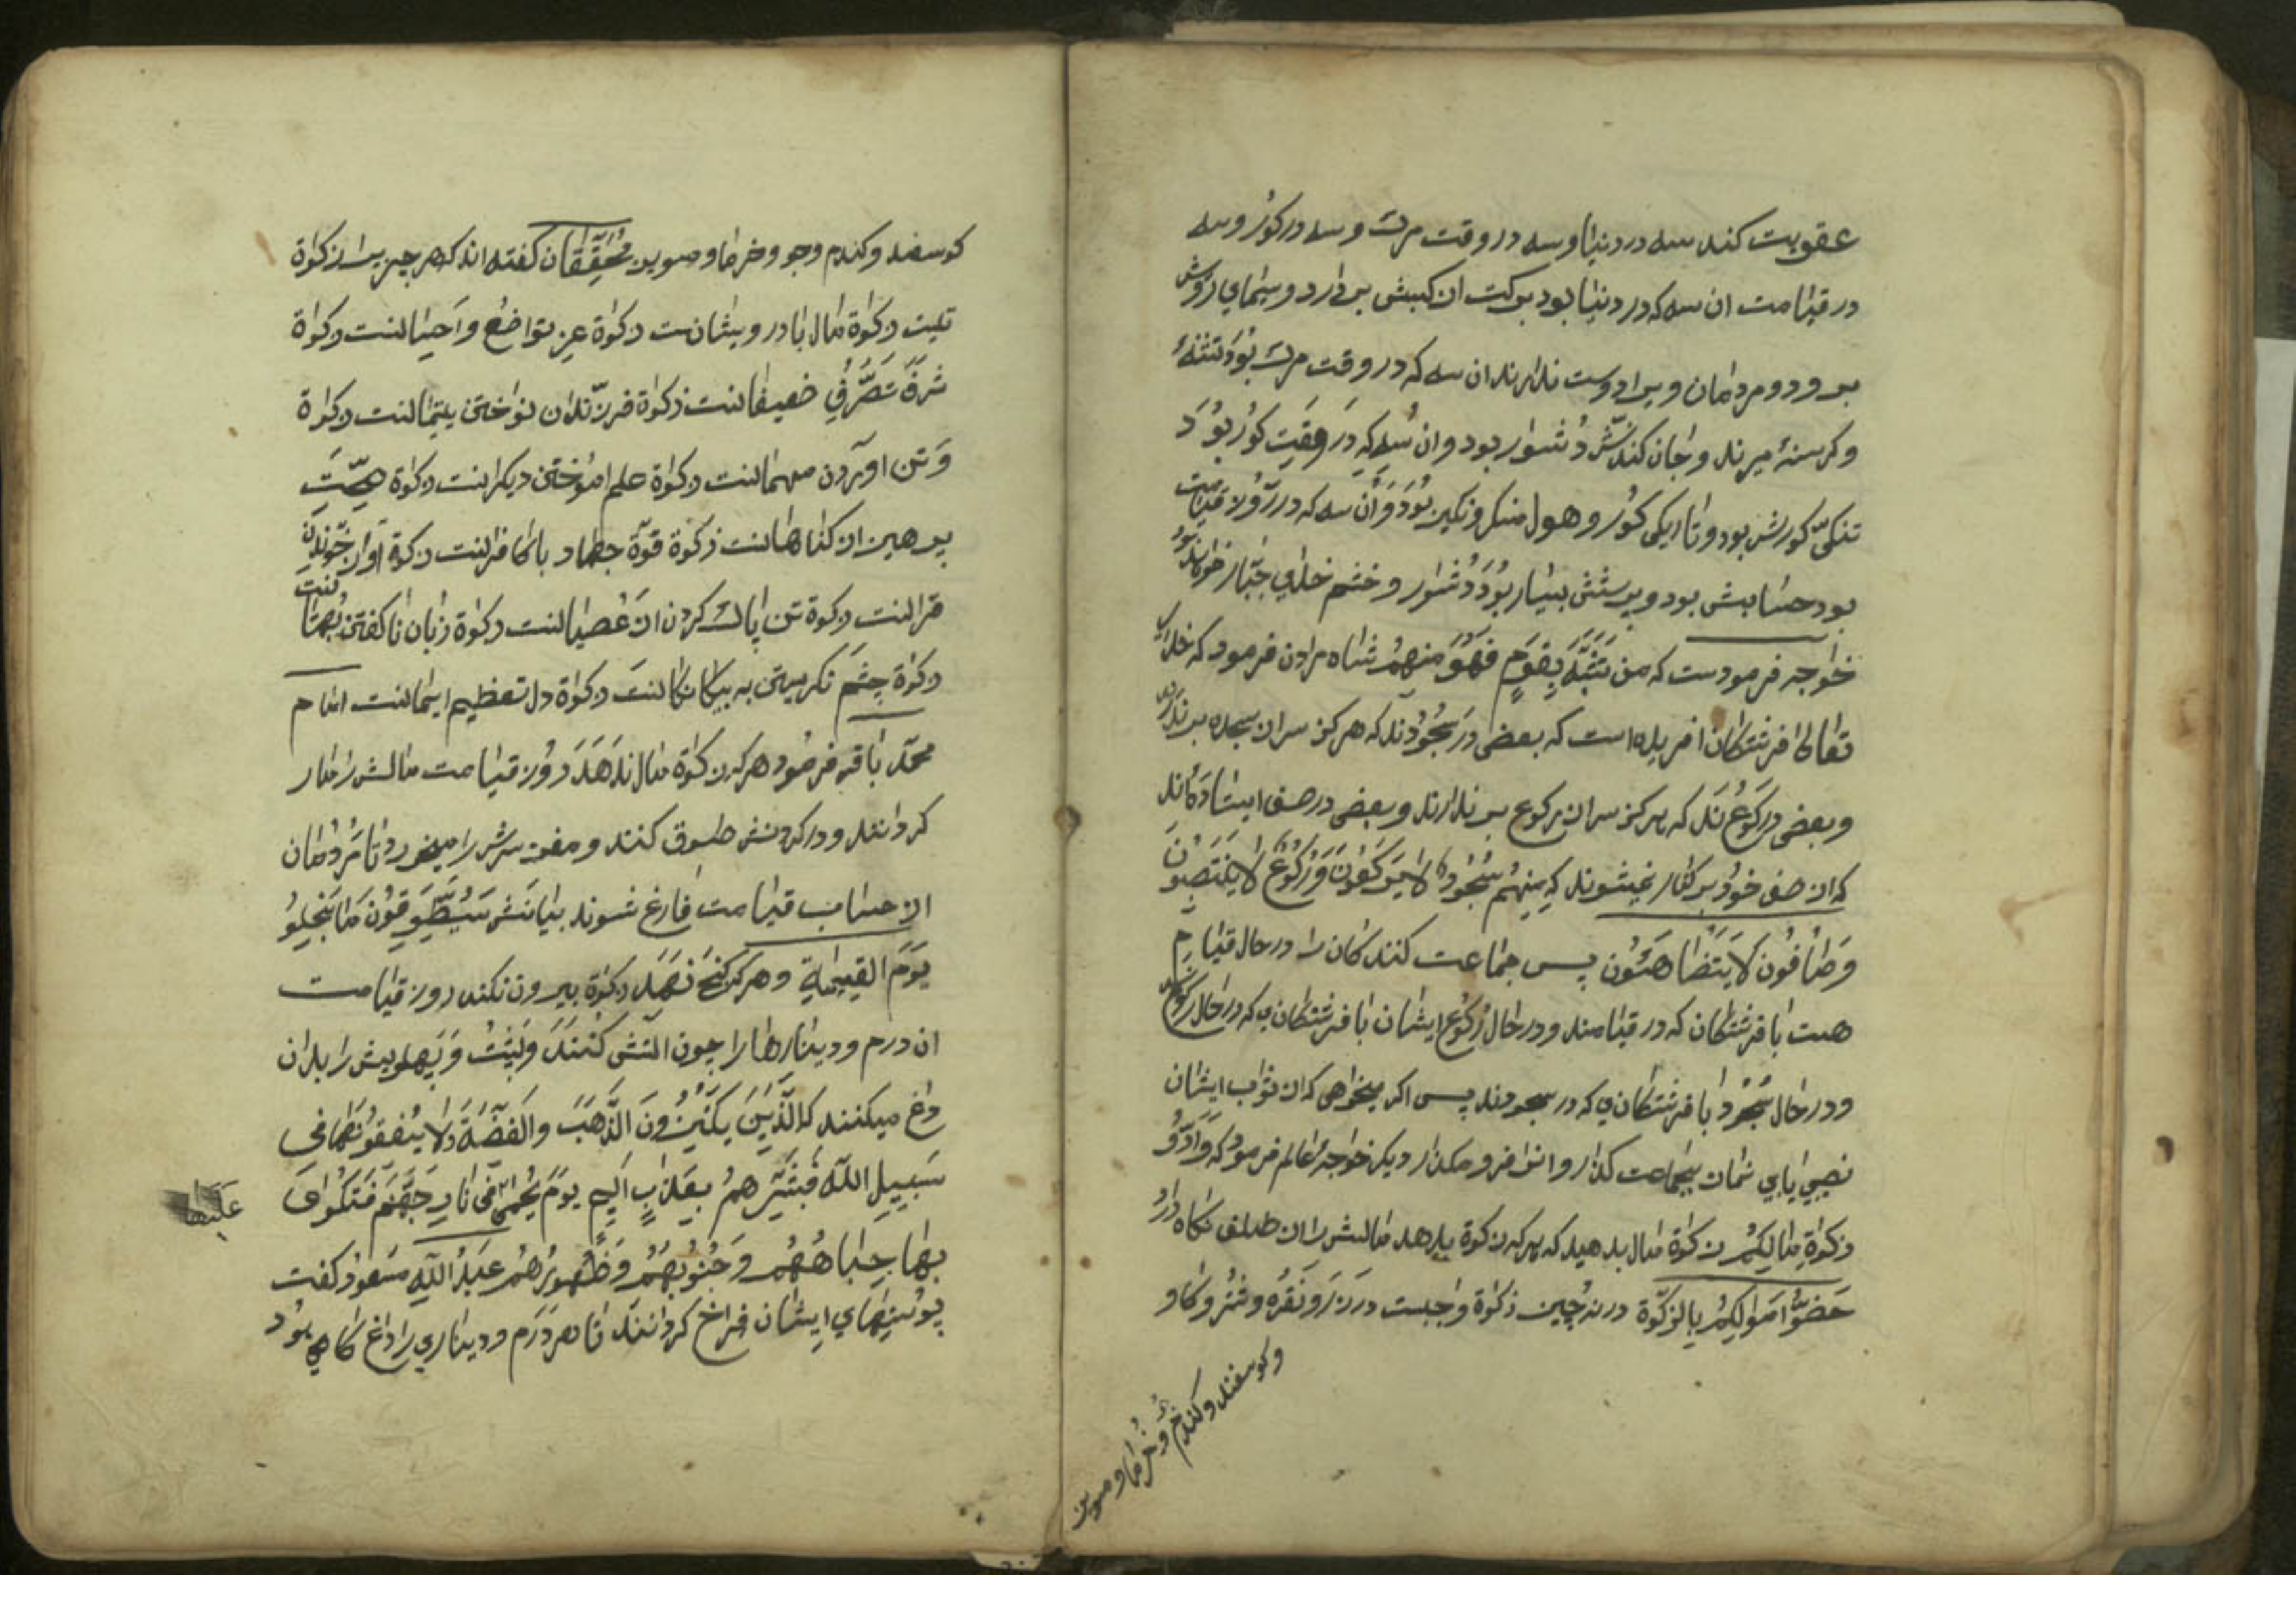 عقوبت کند سه در دنیا و سه در وقت مرک و سه در کور و سه
در قیامت ان سه که در دنیا بود برکت از کسبش بردارد و سیمای از روش
برود و مردمان ویرا دوست ندارند ان سه که در وقت مرک بود تشنه
و کرسنه میرند و جان کندنش دشوار بود و ان سه که در وقت کور بود
تنکی کورش بود و تاریکی کور و هول منکر و نکیر بود و ان سه که در روز قیامت
بود حسابش بود و پرسش بسیار بود دشوار و خشم خدای جبار
خواجه فرمودست که من تشبه بقوم فهو منهم فرمود که خدای
تعالی فرشتکان افریده است که بعضی در سجودند که هرکز سر از سجده برندارند
و بعضی در رکوع ند که هرکز سر از رکوع برندارند و بعضی در صف ایستاده اند
که از صف خود بر کنار نمیشوند که منهم سجود لا یرکعون و رکوع لا ینتصبون
و صافون لا پس جماعت کنندکان را در حال قیام
هست با فرشتکان که در قیامند و در حال رکوع ایشان با فرشتکانی که در حال رکوعند
و در حال سجود با فرشتکانی که در سجودند پس اکر میخواهی که از ثواب ایشان
نصیبی یابی نماز بجماعت کذار دیکر خواجه عالم فرمود که و ادوا
زکوة مالکم زکوة مال بدهید که هر که زکوة بدهد مالش را از تلف نکاه دارد
حصنوا اموالکم بالزکوة در نه چیز زکوة واجبست در زر و نقره و شتر و کاو
و کوسفند و کندم و جو و خرما و مویز
کوسفند و کندم و جو و خرما و مویز محققان کفته اند که هر چیزیرا زکوة
نیست زکوة مال با درویشانست زکوة عز تواضع و احسانست زکوة
شرف تصرف ضعیفانست زکوة فرزندان نواختن یتیمانست زکوة
وتن اوردن مهمانست زکوة علم اموختن دیکرانست زکوة صحت
پرهیز از کناهانست زکوة قوة جهاد با کافرانست زکوة اواز خوندن
قرانست زکوة تن پاک کردن از عصیانست زکوة زبان ناکفتن بهتانست
زکوة چشم نکریستن به بیکانکانست زکوة دل تعظیم ایمانست امام
محمد باقر فرمود هر که زکوة مال ندهد روز قیامت مالش را مار
کردانند و در کردنش طوق کنند و مغز سرش را میخورد تا مردمان
از حساب قیامت فارغ شوند بیانش سیطوقون ما بخلوا
یوم القیمة و هر که کنج نهد زکوة بیرون نکند روز قیامت
ان درم و دینارها را چون اتش کنند و پشت و پهلویش را بدان
داغ میکنند که الذین یکنزون الذهب والفضة ولا ینفقونها فی
سبیل الله فبشرهم بعذاب الیم یوم یحمی فی نار جهنم فتکوی
علیها
بها جباههم و جنوبهم و ظهورهم عبد الله مسعود کفت
پوستهای ایشان فراخ کردانند تا هر درم و دیناری را داغ کاهی بود